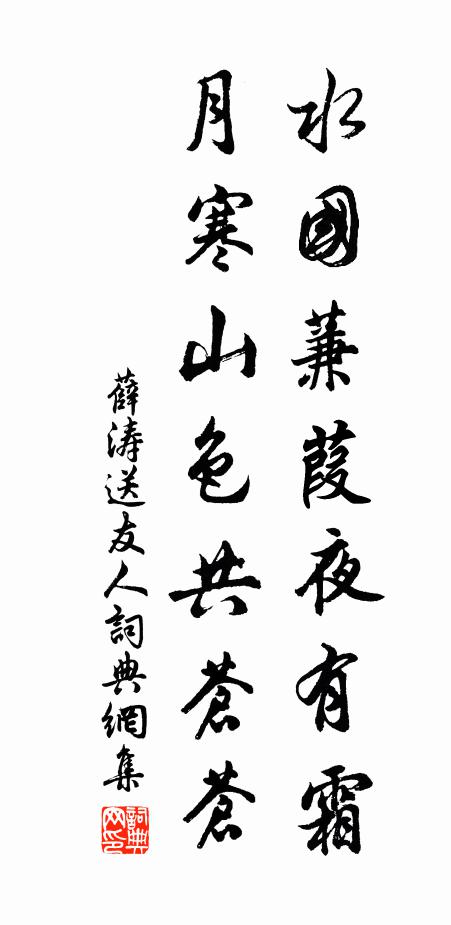 水國蒹葭夜有霜
月寒山色共蒼蒼
薛濤送友人詞典網集
詞典網印